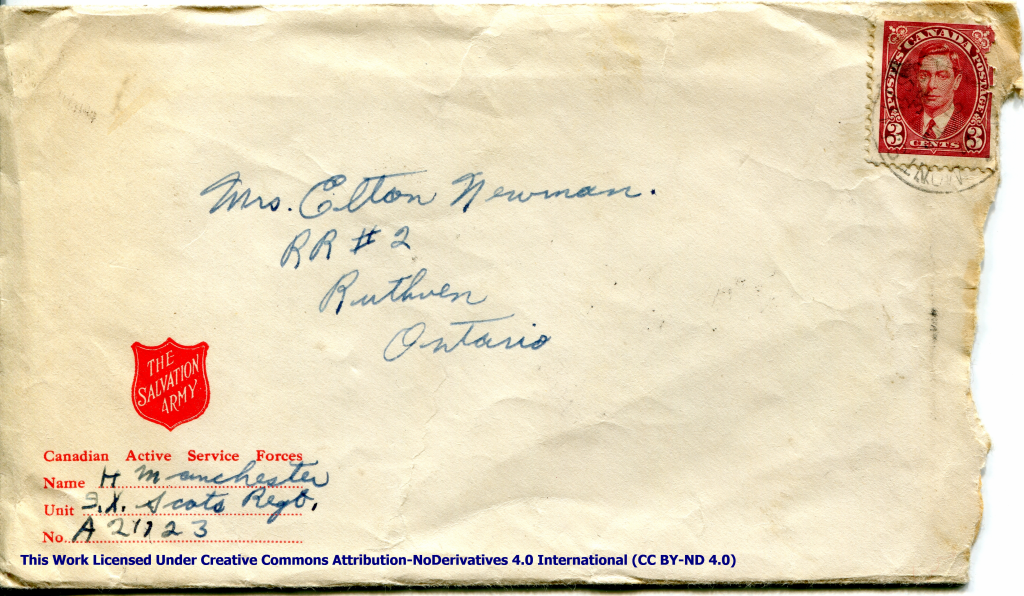 POSTES CANADA POSTAGE
3 CENTS 3
Mrs. Elton Newman.
RR # 2
Ruthven
Ontario
THE
SALVATION
ARMY
Canadian Active Service Forces
Name H Manchester
Unit Scots Regt.
No. A
This Work Licensed Under Creative Commons Attribution-NoDerivatives 4.0 International (CC BY-ND 4.0)